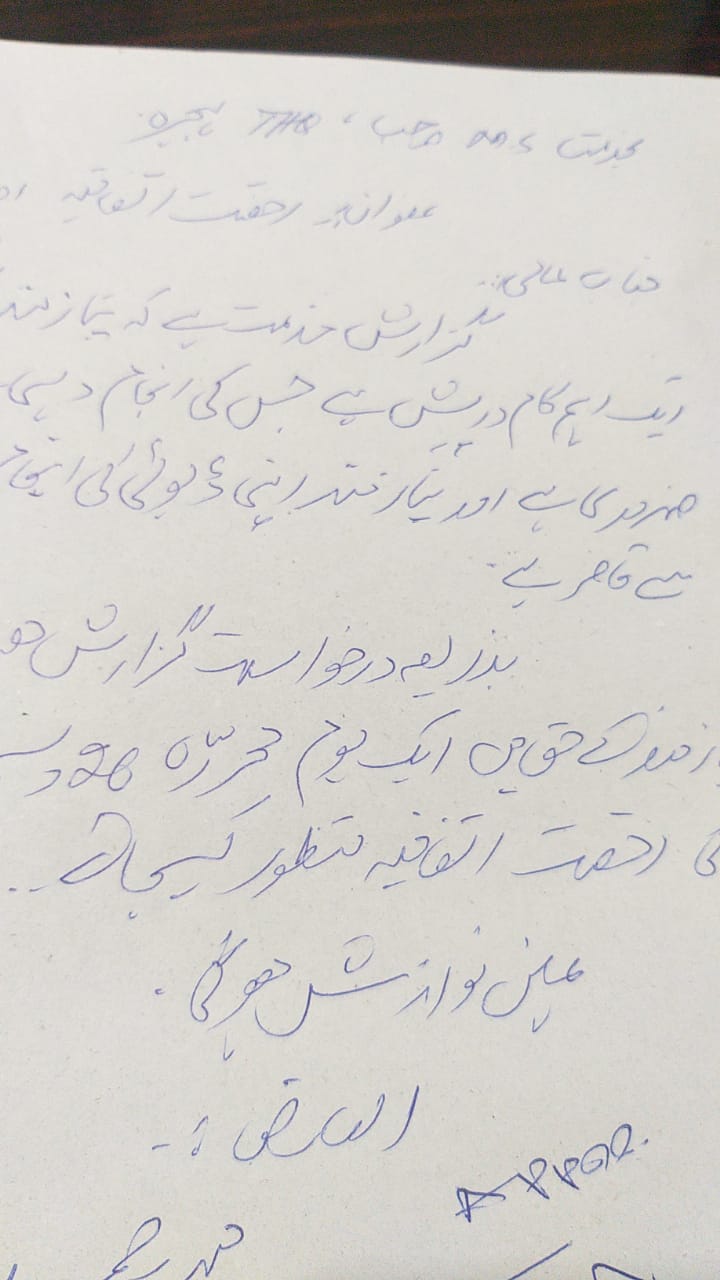 بخدمت MS صاحب، THQ ہجیرہ
عنوان:۔ رخصت اتفاقیہ
جناب عالی:۔
گزارش خدمت ہے کہ نیازمند
ایک اہم کام درپیش ہے جس کی انجام دہی
ضروری ہے اور نیازمند اپنی ڈیوٹی کی انجام
سے قاصر ہے۔
بذریعہ درخواست گزارش
کے حق میں ایک یوم محررہ
کی رخصت اتفاقیہ منظور کیجائے۔
عین نوازش ہوگی۔
العارض:۔